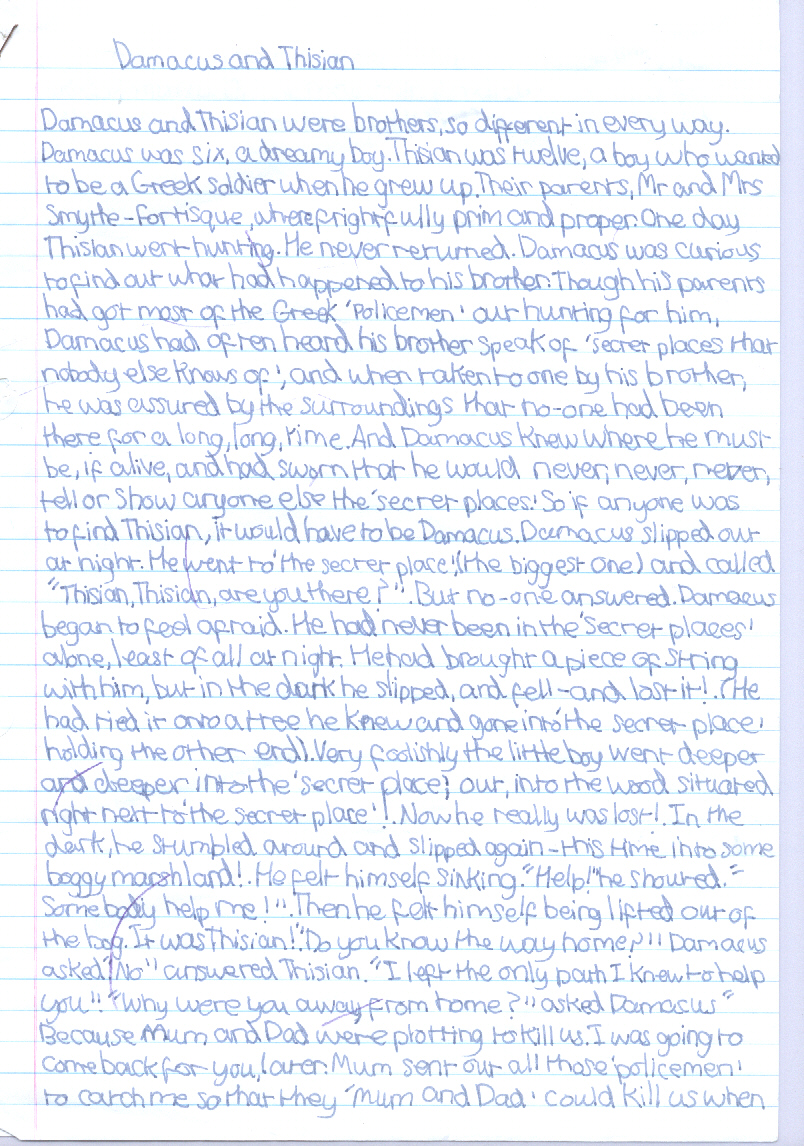 Damacus and Thisian
Damacus and Thisian were brothers, so different in every way.
Damacus was six, a dreamy boy. Thisian was twelve, a boy who wanted
to be a Greek soldier when he grew up. Their parents, Mr and Mrs
Smythe-Fortisque, where frightfully prim and proper. One day
Thisian went hunting. He never returned. Damacus was curious
to find out what had happened to his brother. Though his parents
had got most of the Greek 'Policemen' out hunting for him,
Damacus had often heard his brother speak of 'secret places that
nobody else knows of', and when taken to one by his brother,
he was assured by the surroundings that no-one had been
there for a long, long, time. And Damacus knew where he must
be, if alive, and had sworn that he would never, never, never,
tell or show anyone else the 'secret places.' So if anyone was
to find Thisian, it would have to be Damacus. Damacus slipped out
at night. He went to 'the secret place' (the biggest one) and called
"Thisian, Thisian, are you there?". But no-one answered. Damacus
began to feel afraid. He had never been in the 'secret places'
alone, least of all at night. He had brought a piece of string
with him, but in the dark he slipped, and fell - and lost it!. (He
had tied it onto a tree he knew and gone into 'the secret place'
holding the other end). Very foolishly the little boy went deeper
and deeper into the 'secret place', out, into the wood situated
right next to 'the secret place'!. Now he really was lost!. In the
dark, he stumbled around and slipped again - this time into some
boggy marshland!. He felt himself sinking. "Help!" he shouted. "
Somebody help me!". Then he felt himself being lifted out of
the bog. It was Thisian! "Do you know the way home?" Damacus
asked "No" answered Thisian. "I left the only path I knew to help
you". "Why were you away from home?" asked Damacus "
Because Mum and Dad were plotting to kill us. I was going to
come back for you, later. Mum sent out all those 'policemen'
to catch me so that they 'Mum and Dad' could kill us when